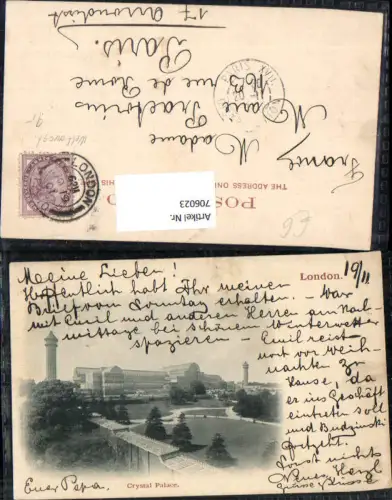 17 Arrondist
Paris.
163 rue de Rome
Marie Praetorius
Madame
France
PARIS XVII
LONDON
THE ADDRESS ONLY
THIS
POS
Artikel Nr.
706023
F6
London. 19/11
Meine Lieben!
Hoffentlich habt Ihr meinen
Brief vom Sonntag erhalten. War
mit Emil und anderen Herren am Nach-
mittage bei schönem Winterwetter
spazieren. - Emil reist
vor Weih-
nachten zu
Hause, da
er ins Geschäft
eintreten soll
und Budzinski
Sonst nichts
Neues. Herzl
Grüsse & Küsse
Euer Papa.
Crystal Palace.